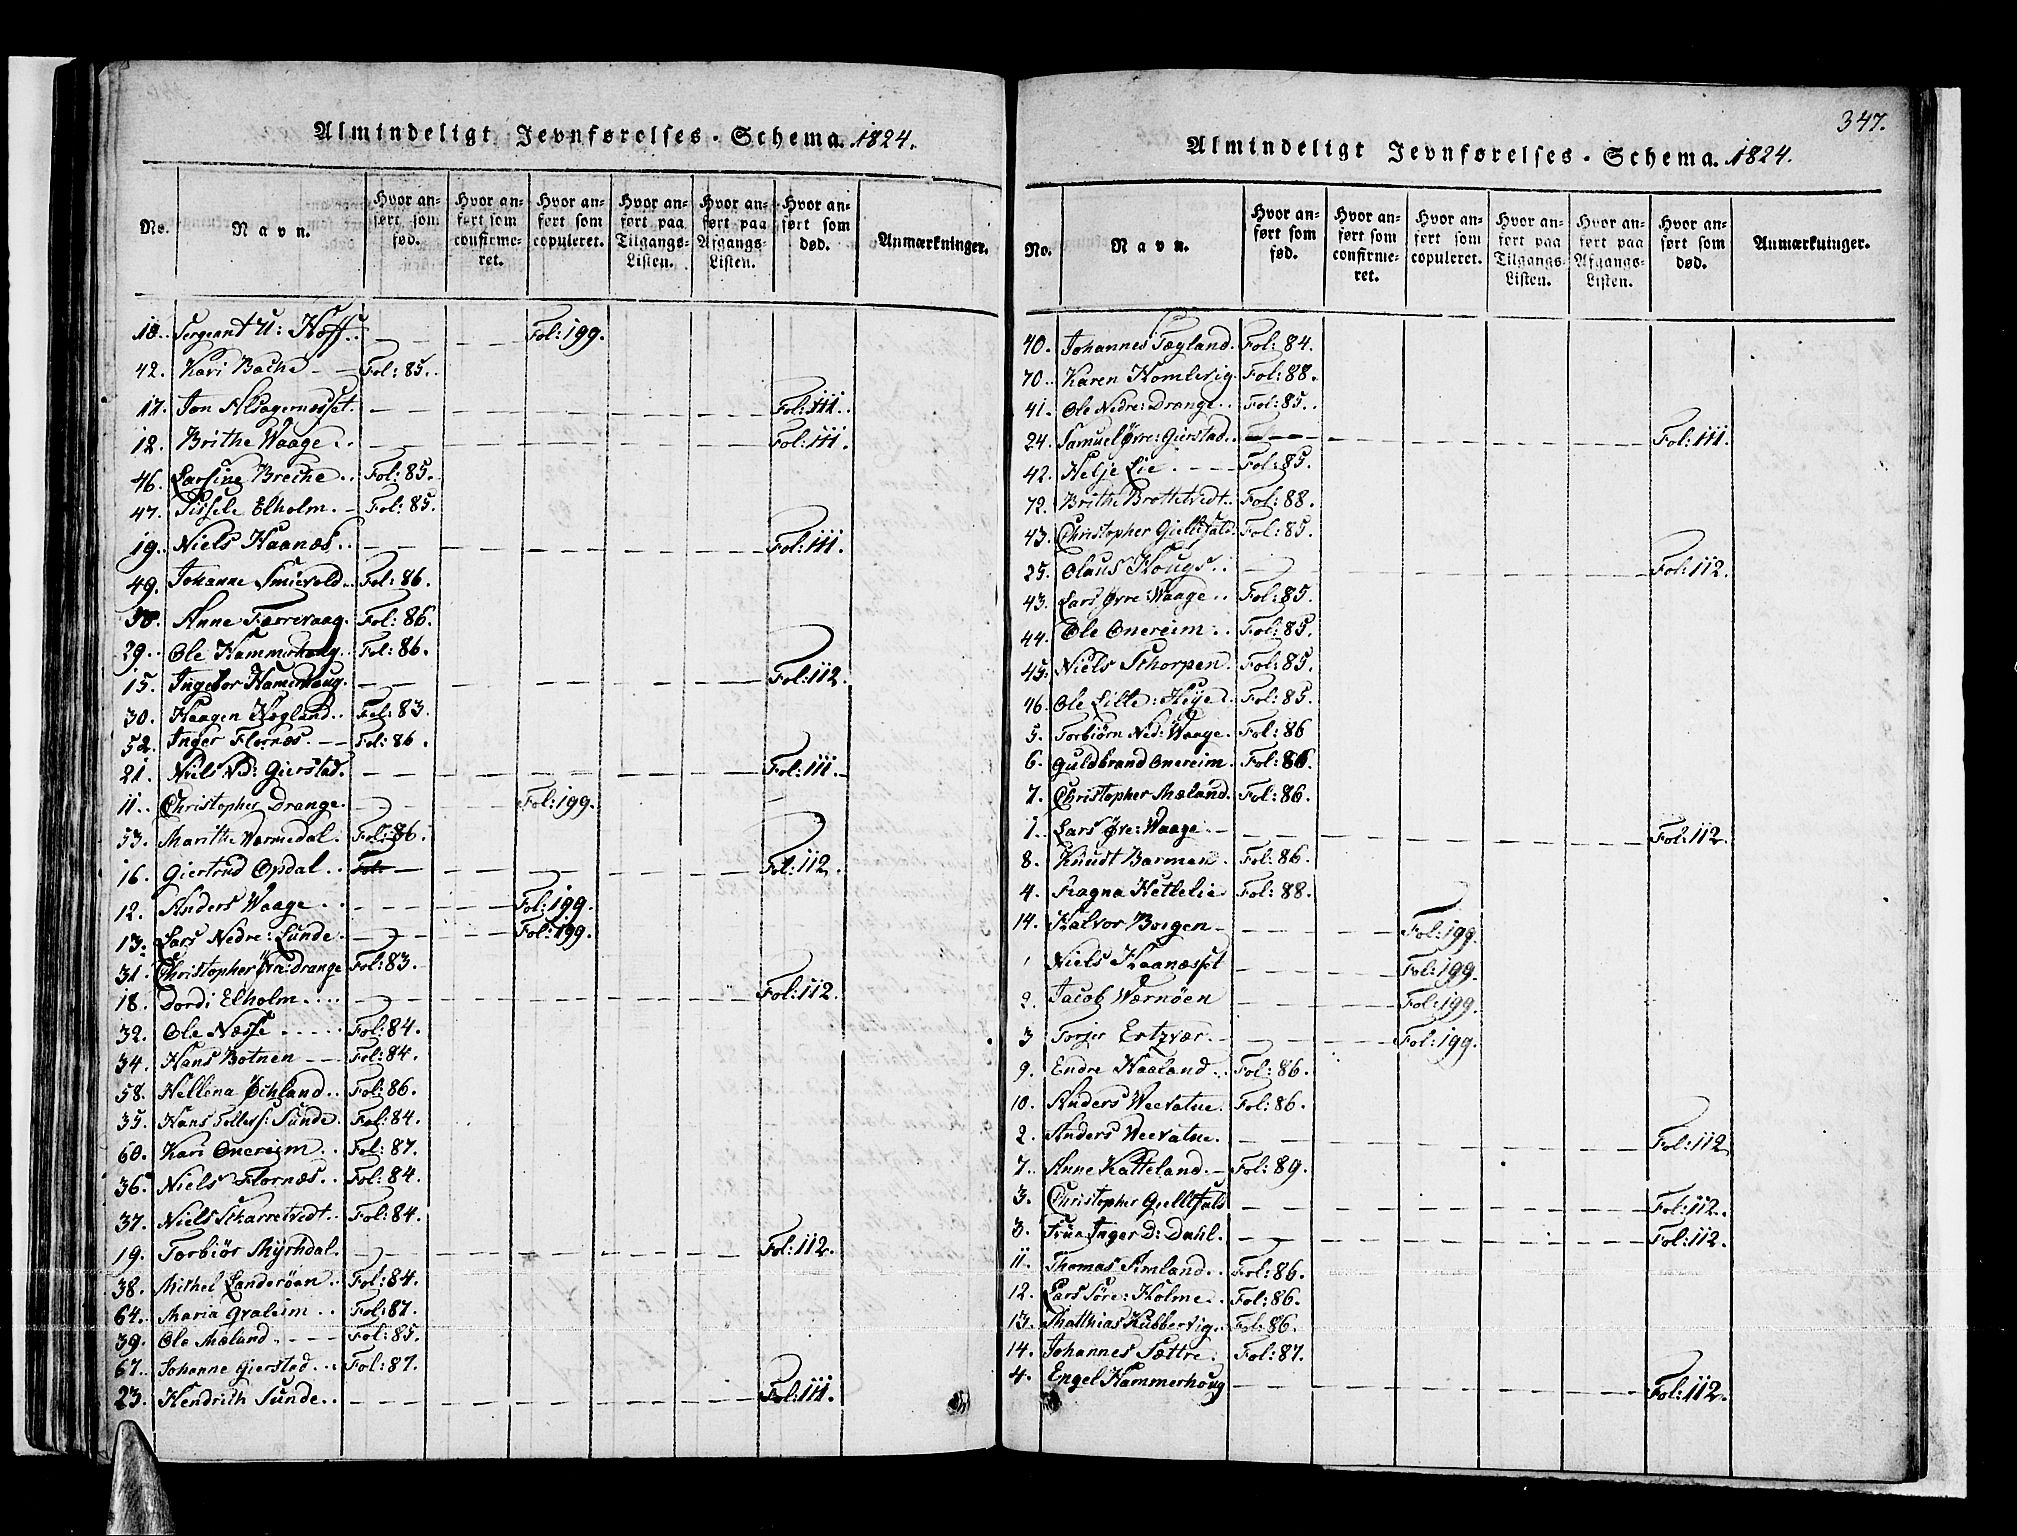 Almindeligt Jevnførelses-Schema. 1824.
No. Navn. Hvor anført som fød. Hvor anført som confirmeret. Hvor anført som copuleret. Hvor anført paa Tilgangs-Listen. Hvor anført paa Afgangs-Listen. Hvor anført som død. Anmærkninger.
18. Sergeant U: Hoff. Fol: 199.
42. Kari Bache Fol: 85.
17. Jon Alsagernæsset. Fol: 111.
12. Brithe Waage Fol: 111.
46. Larsine Breche Fol: 85.
47. Sissele Elholm. Fol: 85.
19. Niels Haanæs Fol: 111.
49. Johanne Smievold Fol: 86.
50. Anne Færrevaag. Fol: 86.
29. Ole Hammerhoug. Fol: 86.
15. Ingebor Hamerhaug. Fol: 112.
30. Haagen Hægland Fol: 83.
52. Inger Flornæs. Fol: 86.
21. Niels Ned: Gierstad. Fol: 111.
11. Christopher Drange. Fol: 199.
53. Marithe Wærmedal. Fol: 86.
16. Giertrud Opdal Fol: Fol: 112.
12. Anders Waage Fol: 199.
13. Lars Nedre: Lunde. Fol: 199.
31. Christopher Øvre: Drange Fol: 83.
18. Dordi Elholm Fol: 112.
32. Ole Næsse Fol: 84.
34. Hans Botnen Fol: 84.
58. Hellena Øchland Fol: 86.
35. Hans Tellefs: Sunde Fol: 84.
60. Kari Onereim Fol: 87.
36. Niels Flornæs Fol: 84.
37. Niels Skarretvedt Fol: 84.
19. Torbiør Myrhdal. Fol: 112.
38. Michel Landerøen Fol: 84.
64. Maria Graleim Fol: 87.
39. Ole Mæland Fol: 85.
67. Johanne Gierstad Fol: 87.
23. Hendrich Sunde Fol: 111.
347.
Almindeligt Jevnførelses-Schema. 1824.
No. Navn. Hvor anført som fød. Hvor anført som confirmeret. Hvor anført som copuleret. Hvor anført paa Tilgangs-Listen. Hvor anført paa Afgangs-Listen. Hvor anført som død. Anmærkninger.
40. Johannes Tægland. Fol: 84.
70. Karen Homlevig. Fol: 88.
41. Ole Nedre: Drange Fol: 85.
24. Samuel Øvre: Gierstad Fol: 111.
42. Helje Lie Fol: 85.
72. Brithe Brottetvedt Fol: 88.
43. Christopher Giellefald Fol: 85.
25. Olaus Hougs Fol: 112.
43. Lars Øvre: Waage Fol: 85.
44. Ole Onereim Fol: 85.
45. Niels Schorpen Fol: 85.
46. Ole Litle: Høye Fol: 85.
5. Torbiørn Ned: Waage. Fol: 86
6. Guldbrand Onereim. Fol: 86.
7. Christopher Mæland. Fol: 86.
1. Lars Øvre: Waage Fol: 112.
8. Knudt Barmen Fol: 86.
4. Ragna Hettelie Fol: 88.
14. Halvor Borgen Fol: 199.
1 Niels Haanæsset Fol: 199.
2. Jacob Wærnøen Fol: 199.
3 Torjer Ertzvær Fol: 199.
9. Endre Haaland Fol: 86.
10. Anders Weevatne. Fol: 86.
2. Anders Weevatne. Fol: 112
7. Anne Katteland Fol: 89.
3. Christopher Giellefald Fol: 112.
3. Frue Inger D: Dahl. Fol: 112.
11. Thomas Simland Fol: 86.
12. Lars Søre: Holme Fol: 86.
13. Matthias Kubbervig Fol: 86.
14. Johannes Sættre. Fol: 87.
4. Engel Hammerhoug Fol: 112.